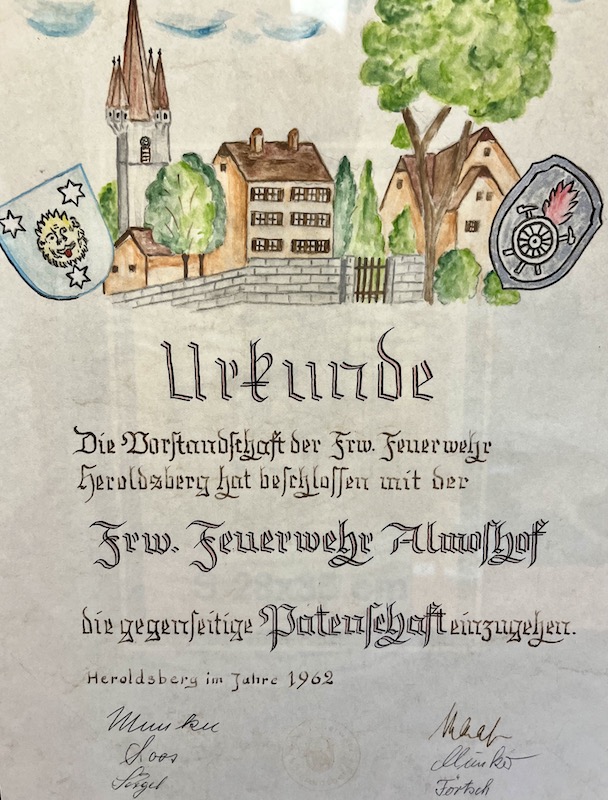 Urkunde
Die Vorstandschaft der Frw. Feuerwehr
Heroldsberg hat beschlossen mit der
Frw. Feuerwehr Almoshof
die gegenseitige Patenschaft einzugehen.
Heroldsberg im Jahre 1962
Loos
Münker
Förtsch